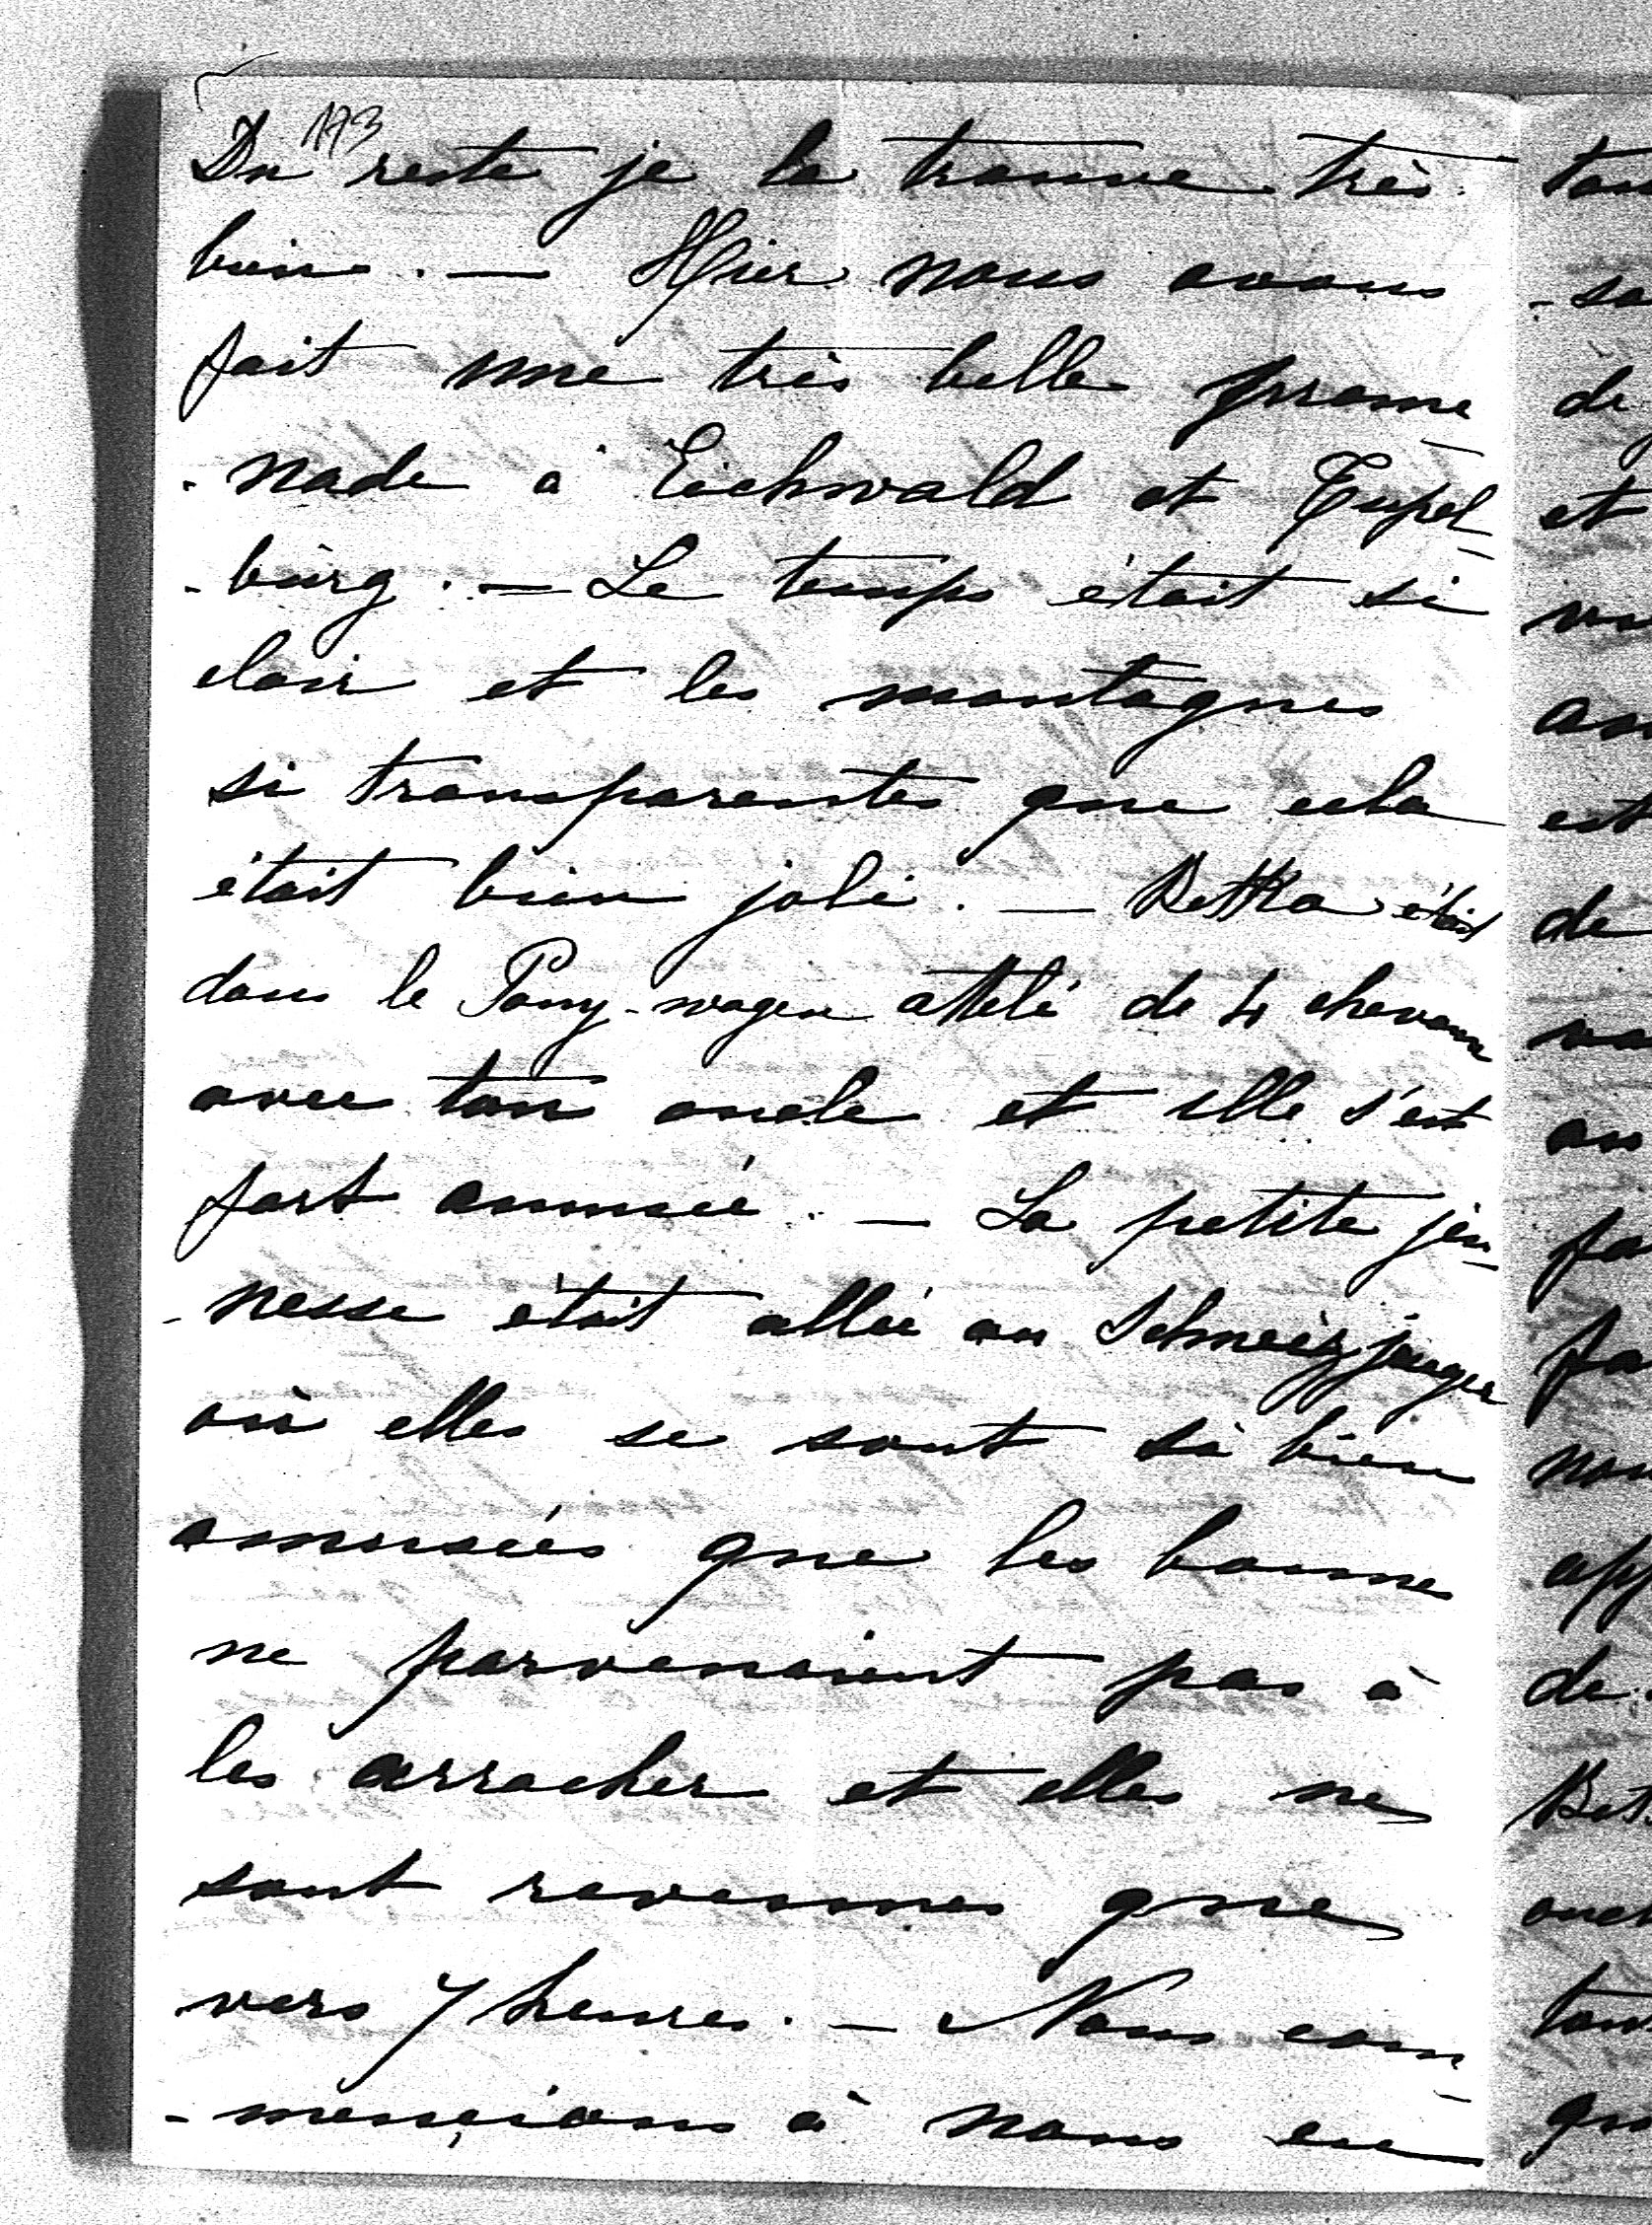 173
Du reste je la trouve très
bien. — Hier nous avons
fait une très belle prome
-nade à Eichwald et Tupel
-burg. — Le temps était si
clair et les montagnes
si transparentes que cela
était bien joli. — Bettka était
dans le Pony-wagen attelé de 4 chevaux
avec ton oncle et elle s'est
fort amusée. — La petite jeu
-nesse était allée au Schweizjaeger
où elles se sont si bien
amusées que les bonnes
ne parvenaient pas à
les arracher et elles ne
sont revenues que
vers 7 heures. — Nous com
-mencions à nous en